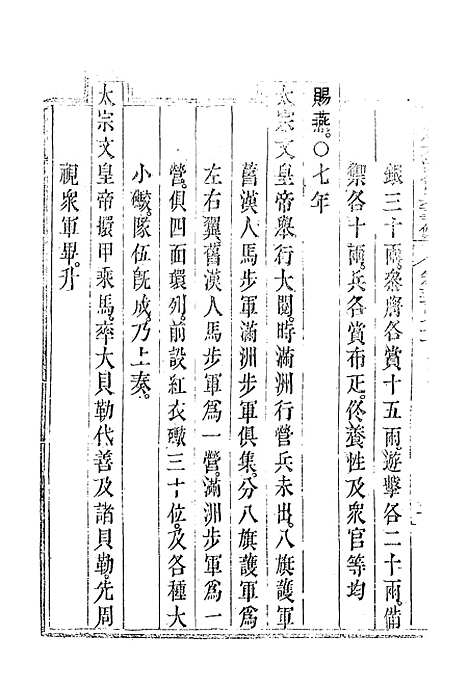 銀三十兩叅將各賞十五兩遊擊各二十兩備
禦各十兩兵各賞布疋佟養性及衆官等均
賜燕。〇七年
太宗文皇帝舉行大閱時滿洲行營兵未出八旗護軍
舊漢人馬步軍滿洲步軍俱集分八旗護軍爲
左右翼舊漢人馬步軍爲一營滿洲步軍爲一
營俱四面環列前設紅衣礮三十位及各種大
小礮隊伍旣成乃上奏。
太宗文皇帝擐甲乘馬率大貝勒代善及諸貝勒先周
視衆軍畢升